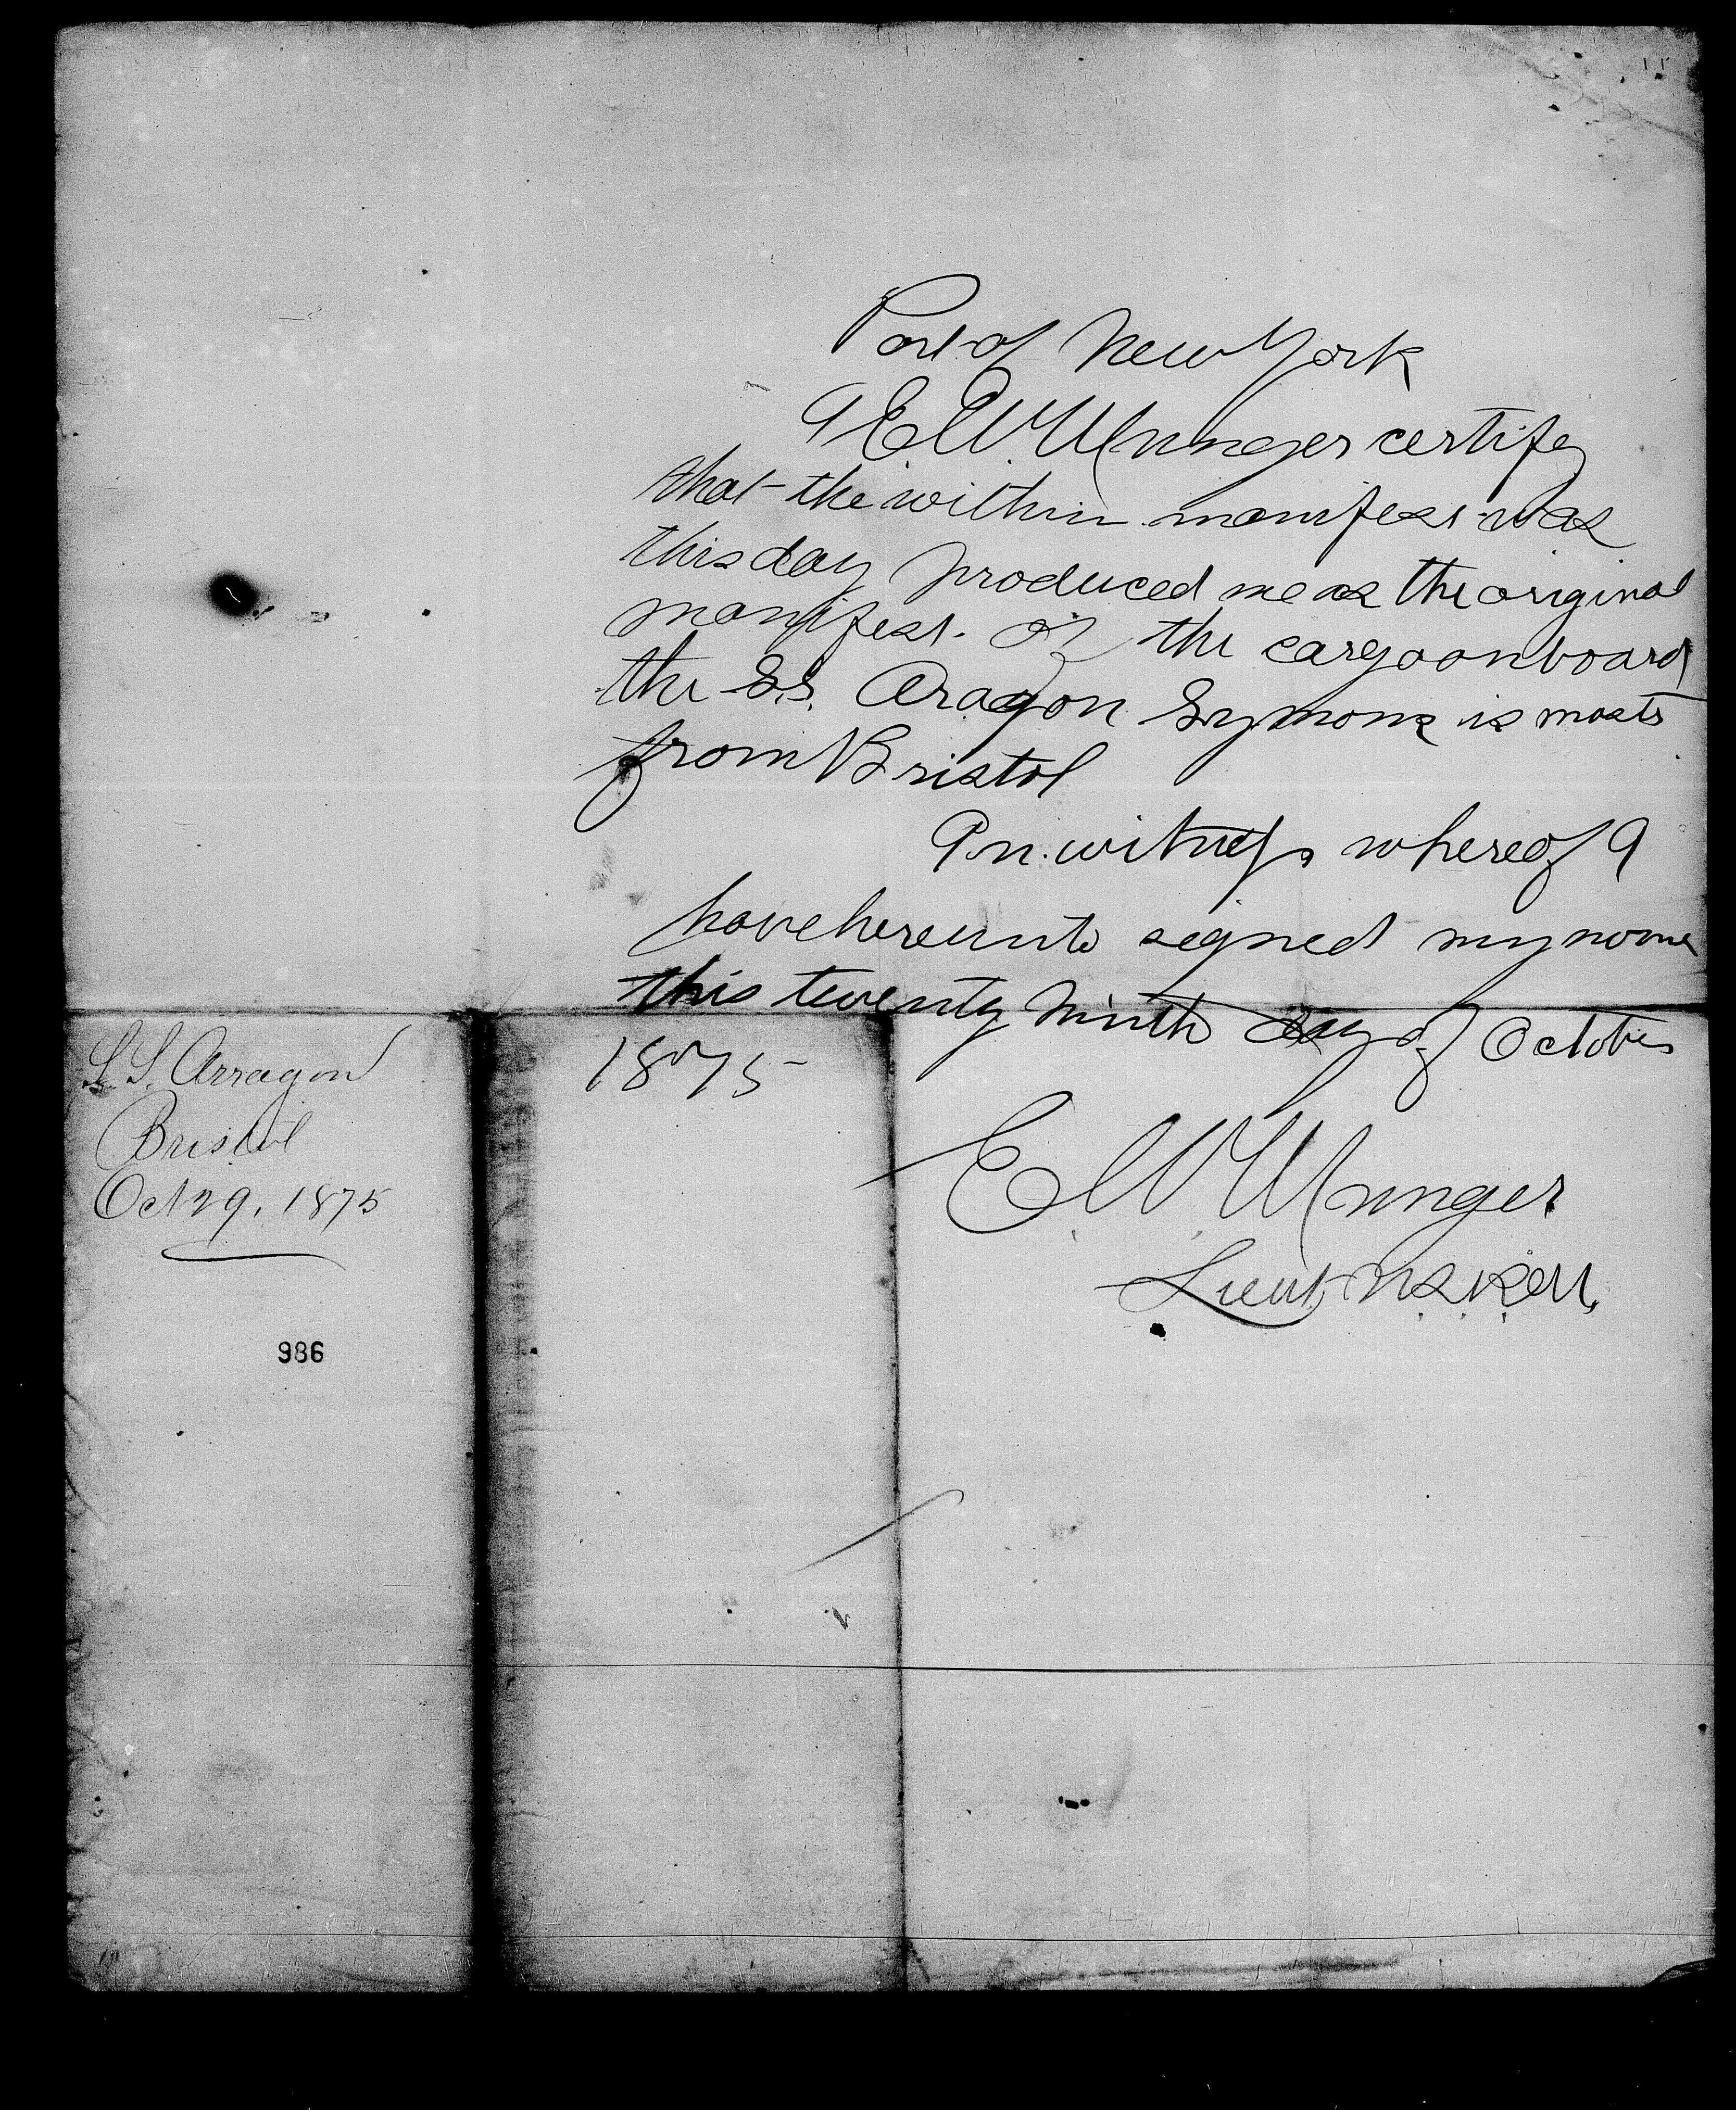 Port of New York
I E. W. Munger certify
that the within manifest was
this day produced me as the original
manifest. of the cargo on board
the S.S. Aragon Symons is mastr
from Bristol
In witness whereof I
have hereunto signed my name
this twenty Ninth day of October
1875
E. W. Munger
Lieut U.S.R.M.
S.S. Arragon
Bristol
Oct 29, 1875
986